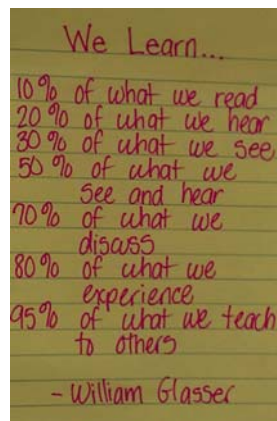 We Learn...
10% of what we read
20% of what we hear
30% of what we see
50% of what we
see and hear
70% of what we
discuss
80% of what we
experience
95% of what we teach
to others
- William Glasser